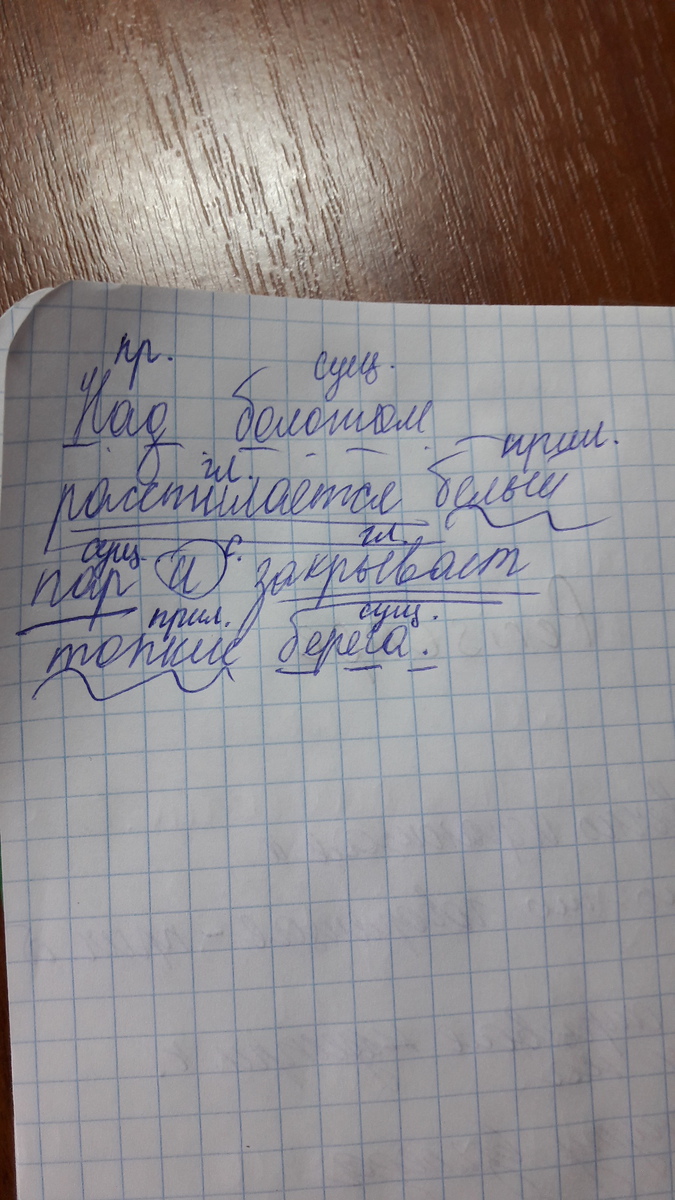 пр. сущ.
Над болотом
гл. прил.
расстилается белый
сущ. с. гл.
пар и закрывает
прил. сущ.
топкие берега.